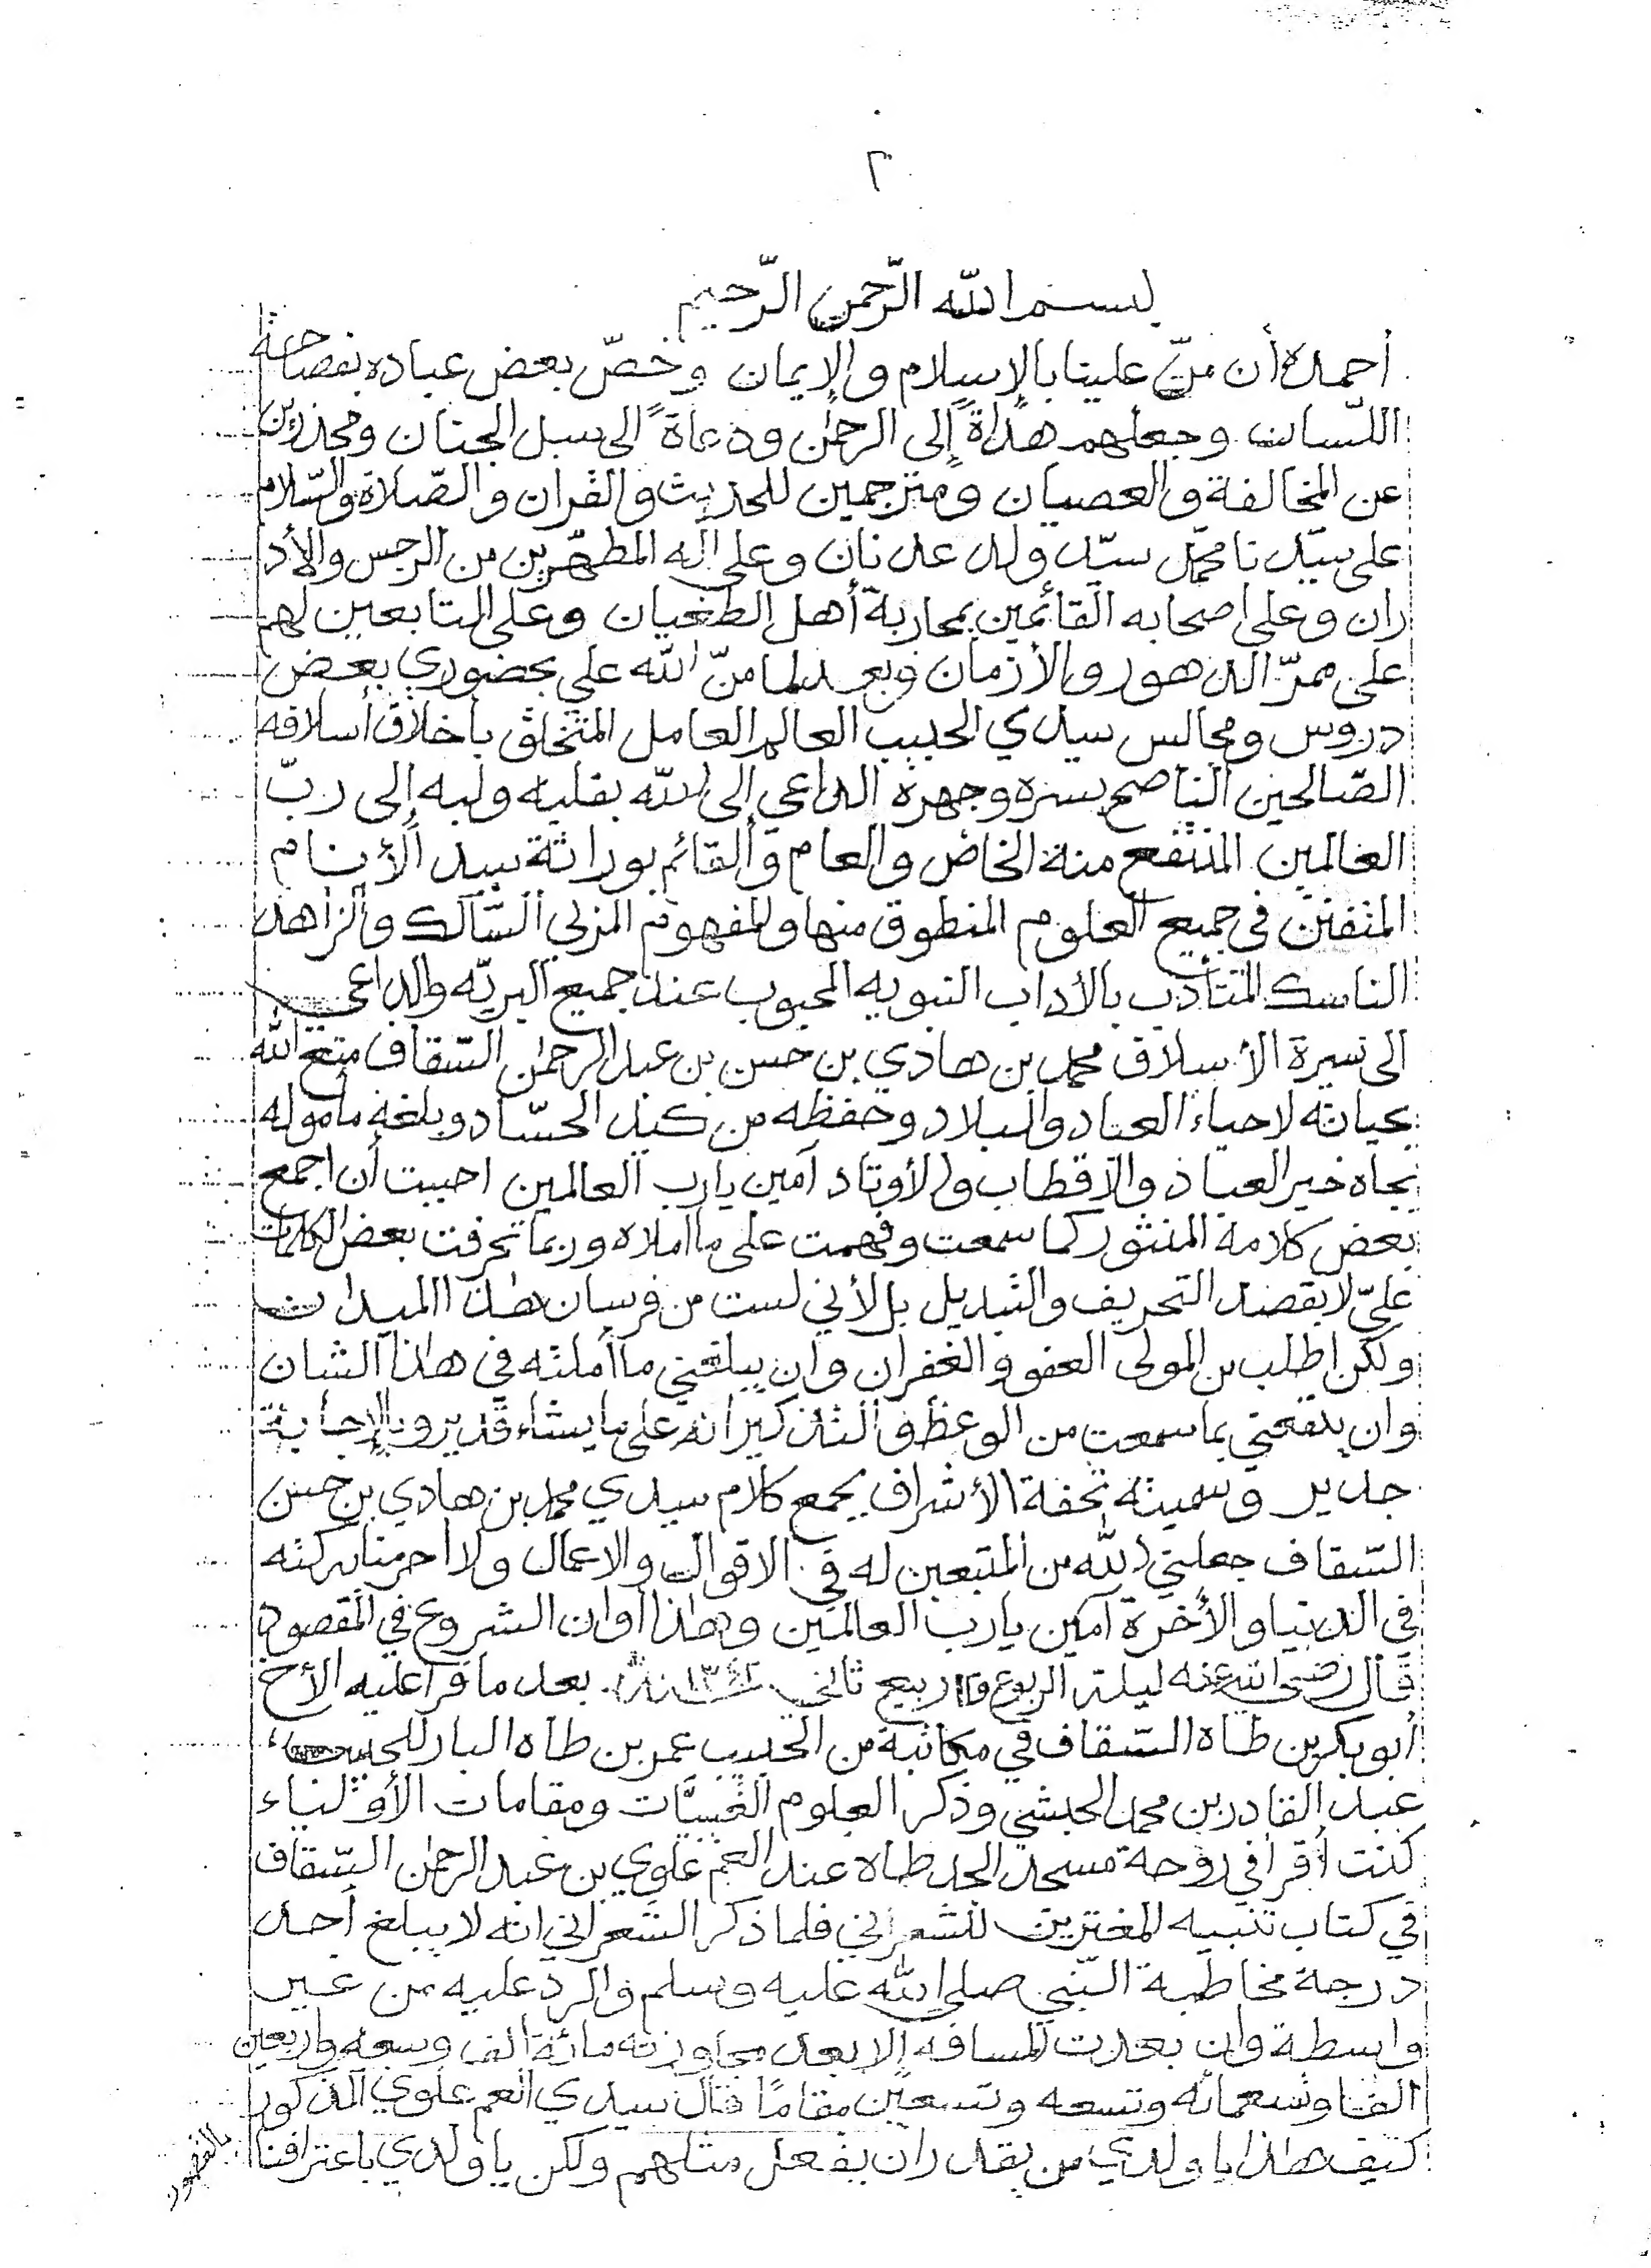 ٢
بسم الله الرّحمن الرّحيم
أحمده أن منّ علينا بالإسلام والإيمان وخصّ بعض عباده بفصاحة
اللّسان وجعلهم هداةً إلى الرحمٰن ودعاةً الى سبل الجنان ومحذرين
عن المخالفة والعصيان ومترجمين للحديث والقران والصّلاة والسّلام
على سيّدنا محمّد سيّد ولد عدنان وعلى اله المطهّرين من الرجس والأد
ران وعلى اصحابه القائمين بمحاربة أهل الطغيان وعلى التابعين لهم
على ممرّ الدهور والأزمان وبعد لما منّ الله علي بحضوري بعض
دروس ومجالس سيدي الحبيب العالم العامل المتخلق باخلاق أسلافه
الصّالحين الناصح بسره وجهره الداعي إلى الله بقلبه ولبه إلى ربّ
العالمين المنتفع منه الخاص والعام والقائم بوراثة سيد الأنام
المتفنن في جميع العلوم المنطوق منها والمفهوم المربي السّالك والزاهد
الناسك المتأدب بالأداب النبويه المحبوب عند جميع البريّه والداعي
الى سيرة الأسلاف محمد بن هادي بن حسن بن عبد الرحمٰن السّقاف متع الله
بحياته لاحياء العباد والبلاد وحفظه من كيد الحسّاد وبلغه مأموله
بجاه خير العباد والاقطاب والأوتاد آمين يارب العالمين احببت أن اجمع
بعض كلامه المنثور كما سمعت وفهمت على ما املاه وربما تحرفت بعض الكلمات
عليّ لا بقصد التحريف والتبديل بل لأني لست من فرسان هٰذا الميدان
ولكن اطلب من المولى العفو والغفران وان يبلغني ما أملته في هٰذا الشان
وان ينفعني بما سمعت من الوعظ والتذكير انه على ما يشاء قدير وبالإجابة
جدير وسميته تحفة الأشراف بجمع كلام سيدي محمد بن هادي بن حسن
السّقاف جعلني الله من المتبعين له في الاقوال والاعمال ولا احرمنا بركته
في الدنيا والأخرة آمين يارب العالمين وهٰذا أوان الشروع في المقصود
قال رضي الله عنه ليلة الربوع ربيع ثاني سنة بعد ما قرأ عليه الأخ
أبو بكر بن طاه السّقاف في مكاتبة من الحبيب عمر بن طاه البار للحبيب
عبد القادر بن محمد الحبشي وذكر العلوم الغيبيّات ومقامات الأولياء
كنت أقرأ في روحة مسجد الجد طاه عند العم علوي بن عبد الرحمٰن السّقاف
في كتاب تنبيه المغترين للشعراني فلما ذكر الشعراني انه لا يبلغ أحد
درجة مخاطبة النّبي صلى الله عليه وسلم والرد عليه من غير
واسطة وان بعدت المسافه إلا بعد مجاوزته مائة ألف وسبعه واربعين
الفا وتسعمائه وتسعه وتسعين مقامًا قال سيدي العم علوي المذكور
كيف هٰذا يا ولدي من يقدر ان يفعل مثلهم ولكن يا ولدي باعترافنا
بالقصور